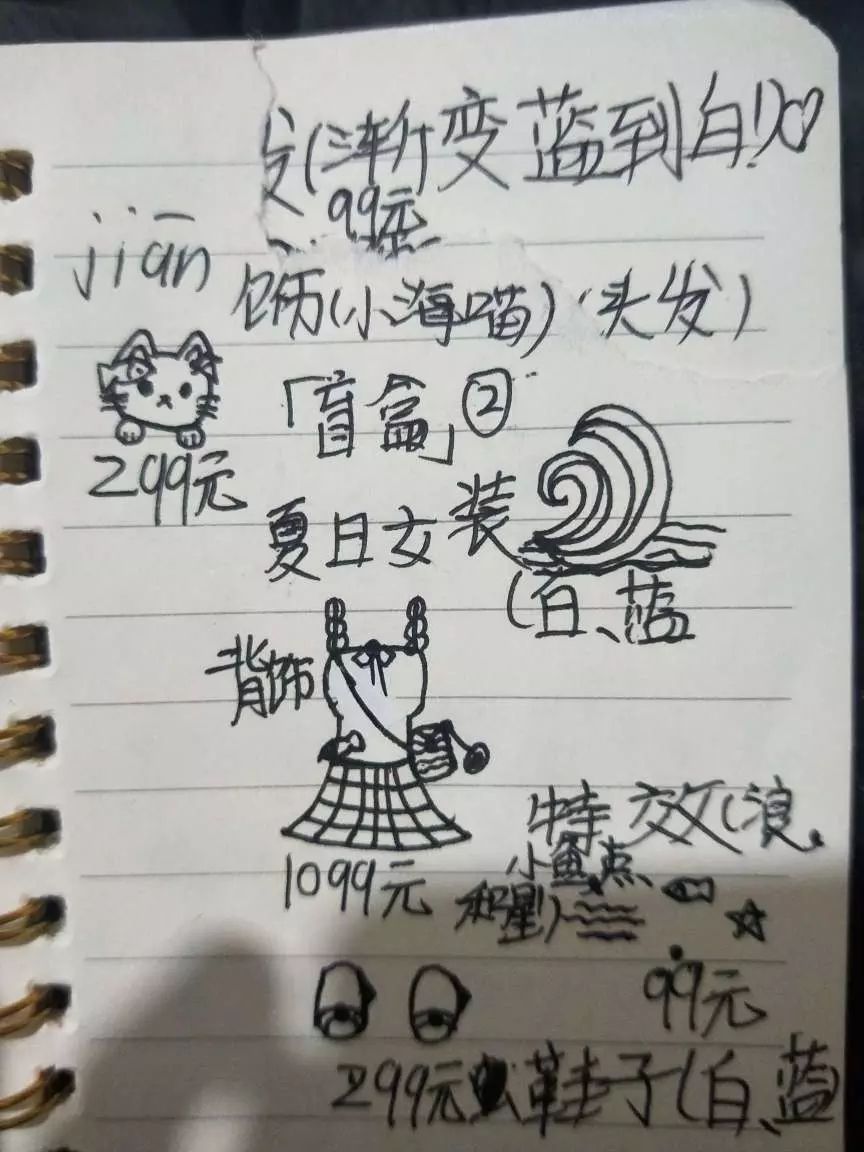 发(渐变蓝到白)
99元
jiān
饰(小海喵)(头发)
「盲盒」②
299元
夏日女装
(白、蓝
背饰
特效(浪、
小鱼、点、
和星)
1099元
99元
299元 鞋子(白、蓝